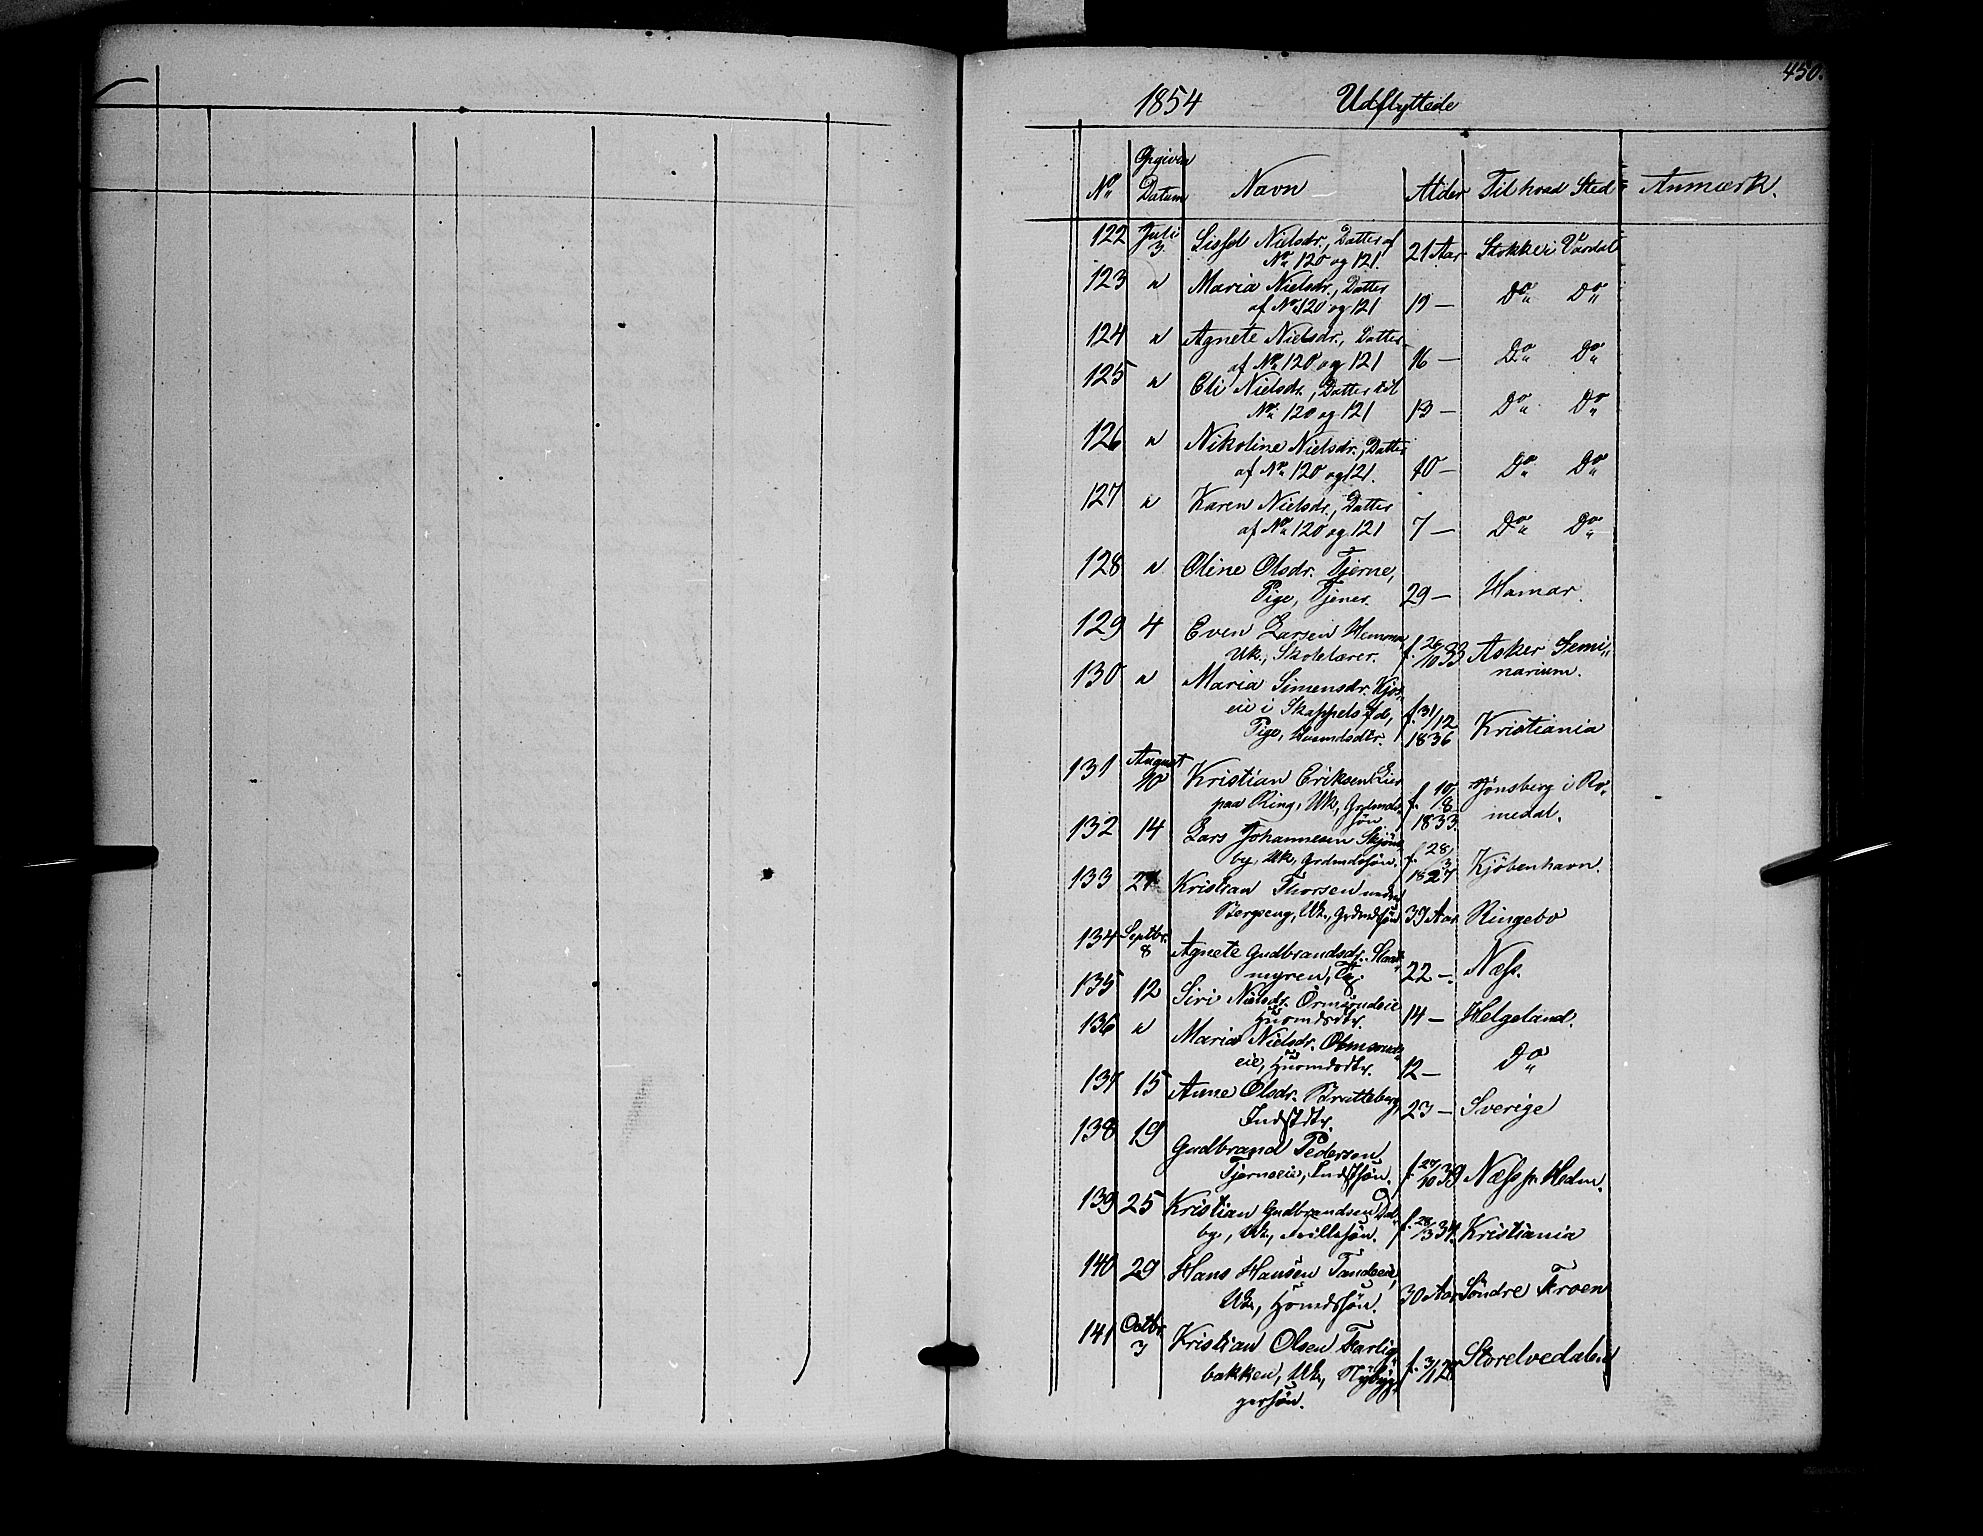 450.
1854 Udflyttede
No Opgiven Datum Navn Alder Til hvad Sted Anmærk.
122 Juli 3. Sissel Nielsdr., Datter af
No 120 og 121. 21 Aar Stokke i Vardal
123 " Maria Nielsdr., Datter
af No 120 og 121 19 — Do Do
124 " Agnete Nielsdr., Datter
af No 120 og 121 16 — Do Do
125 " Eli Nielsdr., Datter til
No 120 og 121 13 — Do Do
126 " Nikoline Nielsdr., Datter
af No 120 og 121. 10 — Do Do
127 " Karen Nielsdr., Datter
af No 120 og 121 7 — Do Do
128 " Oline Olsdr. Tjerne,
Pige, Tjener. 29 — Hamar.
129 4 Even Larsen
Uk., Skolelærer. f. 26/10 33 Asker Semi„
narium.
130 " Maria Simensdr.
eie i
Pige, f. 31/12
1836 Kristiania
131 August 10 Kristian Eriksen Eier
paa Ring, Uk., Grdmds„
søn f. 10/8
1833. Jønsberg i Ro„
medal.
132 14 Lars Johannesen
by, Uk, Grdmdssøn. f. 28/3
1827 Kjøbenhavn.
133 Kristian Thorsen
Bergseng, Uk., Grdmdssøn 39 Aar Ringebo
134 Septbr. 8 Agnete Gudbrandsdr.
myren, 22 — Næss.
135 12 Siri Nielsdr. Ormsrudeie
Husmdsdtr. 14 — Helgeland.
136 " Maria Nielsdr.
eie, Husmdsdtr. 12 — Do
137 15 Anne Olsdr. Bratteberg,
Indstdtr. 23 — Sverige
138 19 Gudbrand Pedersen
Tjerneeie, Indstsøn. f. 27/10 39 Næss p. Hedm.
139 25 Kristian Gudbrandsen Dal„
by, Uk., f. 28/3 34. Kristiania
140 29 Hans Hansen
Uk., Husmdssøn. 30 Aar Søndre Froen
141 Octbr. 3 Kristian Olsen
bakken, Uk., Nybyg„
gersøn. f. 3/1 28 Storelvedalen